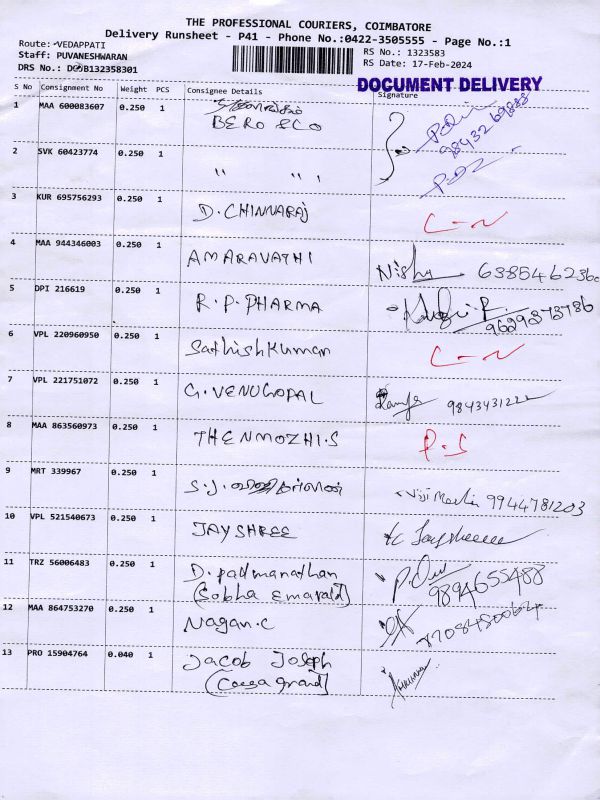 THE PROFESSIONAL COURIERS, COIMBATORE
Delivery Runsheet - P41 - Phone No.:0422-3505555 - Page No.:1
Route: VEDAPPATI
Staff: PUVANESHWARAN
RS No.: 1323583
DRS No.: B132358301
RS Date: 17-Feb-2024
DOCUMENT DELIVERY
S No Consignment No Weight PCS Consignee Details Signature
1 MAA 600083607 0.250 1 BERO & CO 98432 69888
2 SVK 60423774 0.250 1 " " ,
3 KUR 695756293 0.250 1 D. CHINNARAJ C - N
4 MAA 944346003 0.250 1 AMARAVATHI Nisha 638546236
5 DPI 216619 0.250 1 R. P. PHARMA 9629873786
6 VPL 220960950 0.250 1 SathishKumar C - N
7 VPL 221751072 0.250 1 G. VENUGOPAL 9843431222
8 MAA 863560973 0.250 1 THENMOZHI.S P.S
9 MRT 339967 0.250 1 S.J. 9944781203
10 VPL 521540673 0.250 1 JAYSHREE
11 TRZ 56006483 0.250 1 D. Padmanathan 9894655488
(Sobha Emarald)
12 MAA 864753270 0.250 1 Nagan.C 7708450064
13 PRO 15904764 0.040 1 Jacob Joseph
(Casa grand)